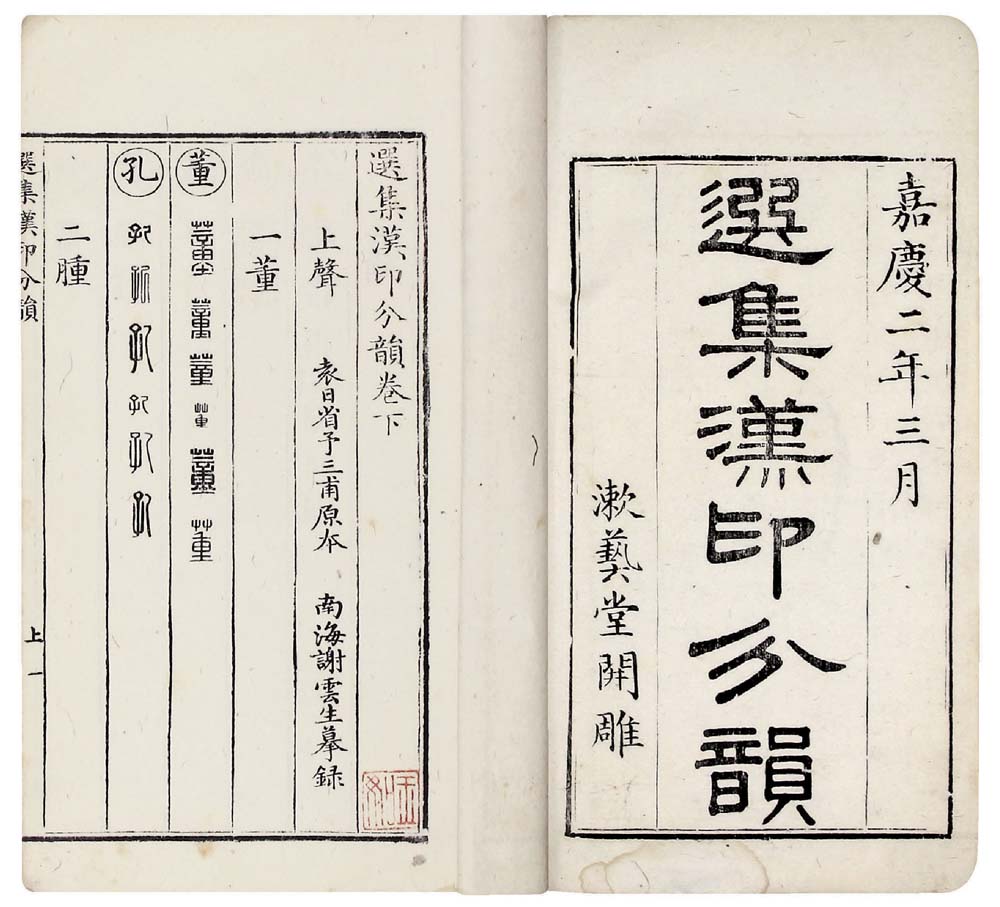 嘉慶二年三月
選集漢印分韻
漱藝堂開雕
選集漢印分韻卷下
上聲 袁日省予三甫原本 南海謝雲生摹録
一董
董 董董董董董董
孔 孔孔孔孔孔孔
二腫
選集漢印分韻 上 一